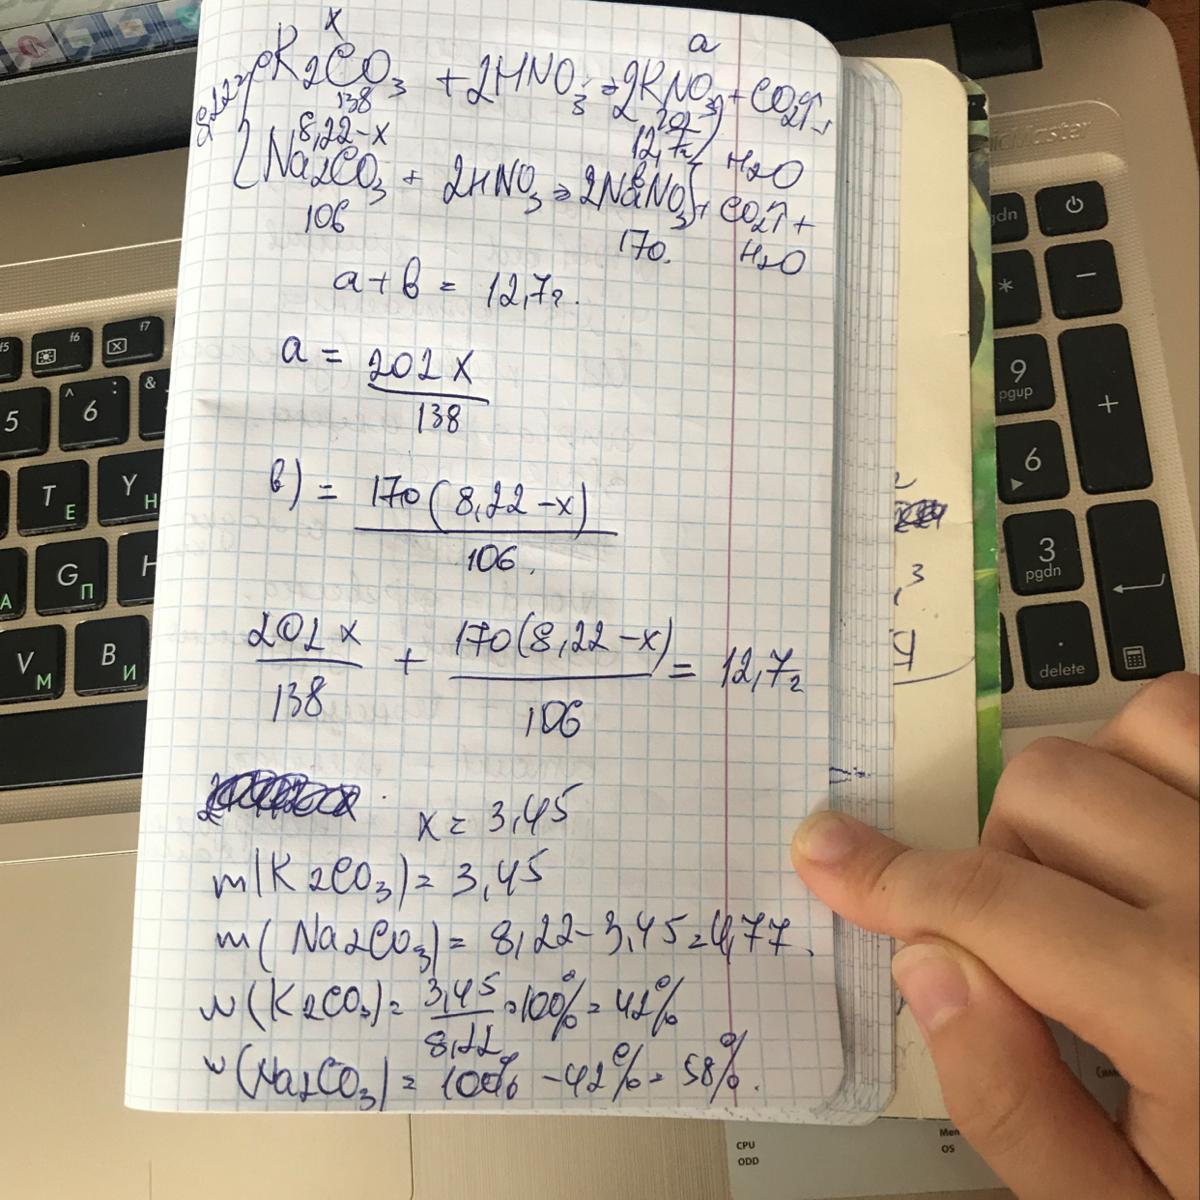 x a
8,22г K2CO3 + 2HNO3 = 2KNO3 + CO2↑ +
138 202
8,22-x 12,7г H2O
Na2CO3 + 2HNO3 = 2NaNO3 + CO2↑ +
106 170. H2O
a+в = 12,7г.
a = 202x
138
в) = 170(8,22-x)
106.
202x + 170(8,22-x) = 12,7г
138 106
x = 3,45
m(K2CO3) = 3,45
m(Na2CO3) = 8,22-3,45=4,77.
w(K2CO3) = 3,45 · 100% = 42%
8,22
w(Na2CO3) = 100% - 42% = 58%.
f5 f6 f7
5 ^ 6 : &
T Е Y Н
А G П H
V М B И
gdn
* −
9 pgup +
6
3 pgdn
. delete
CPU
ODD
OS
3